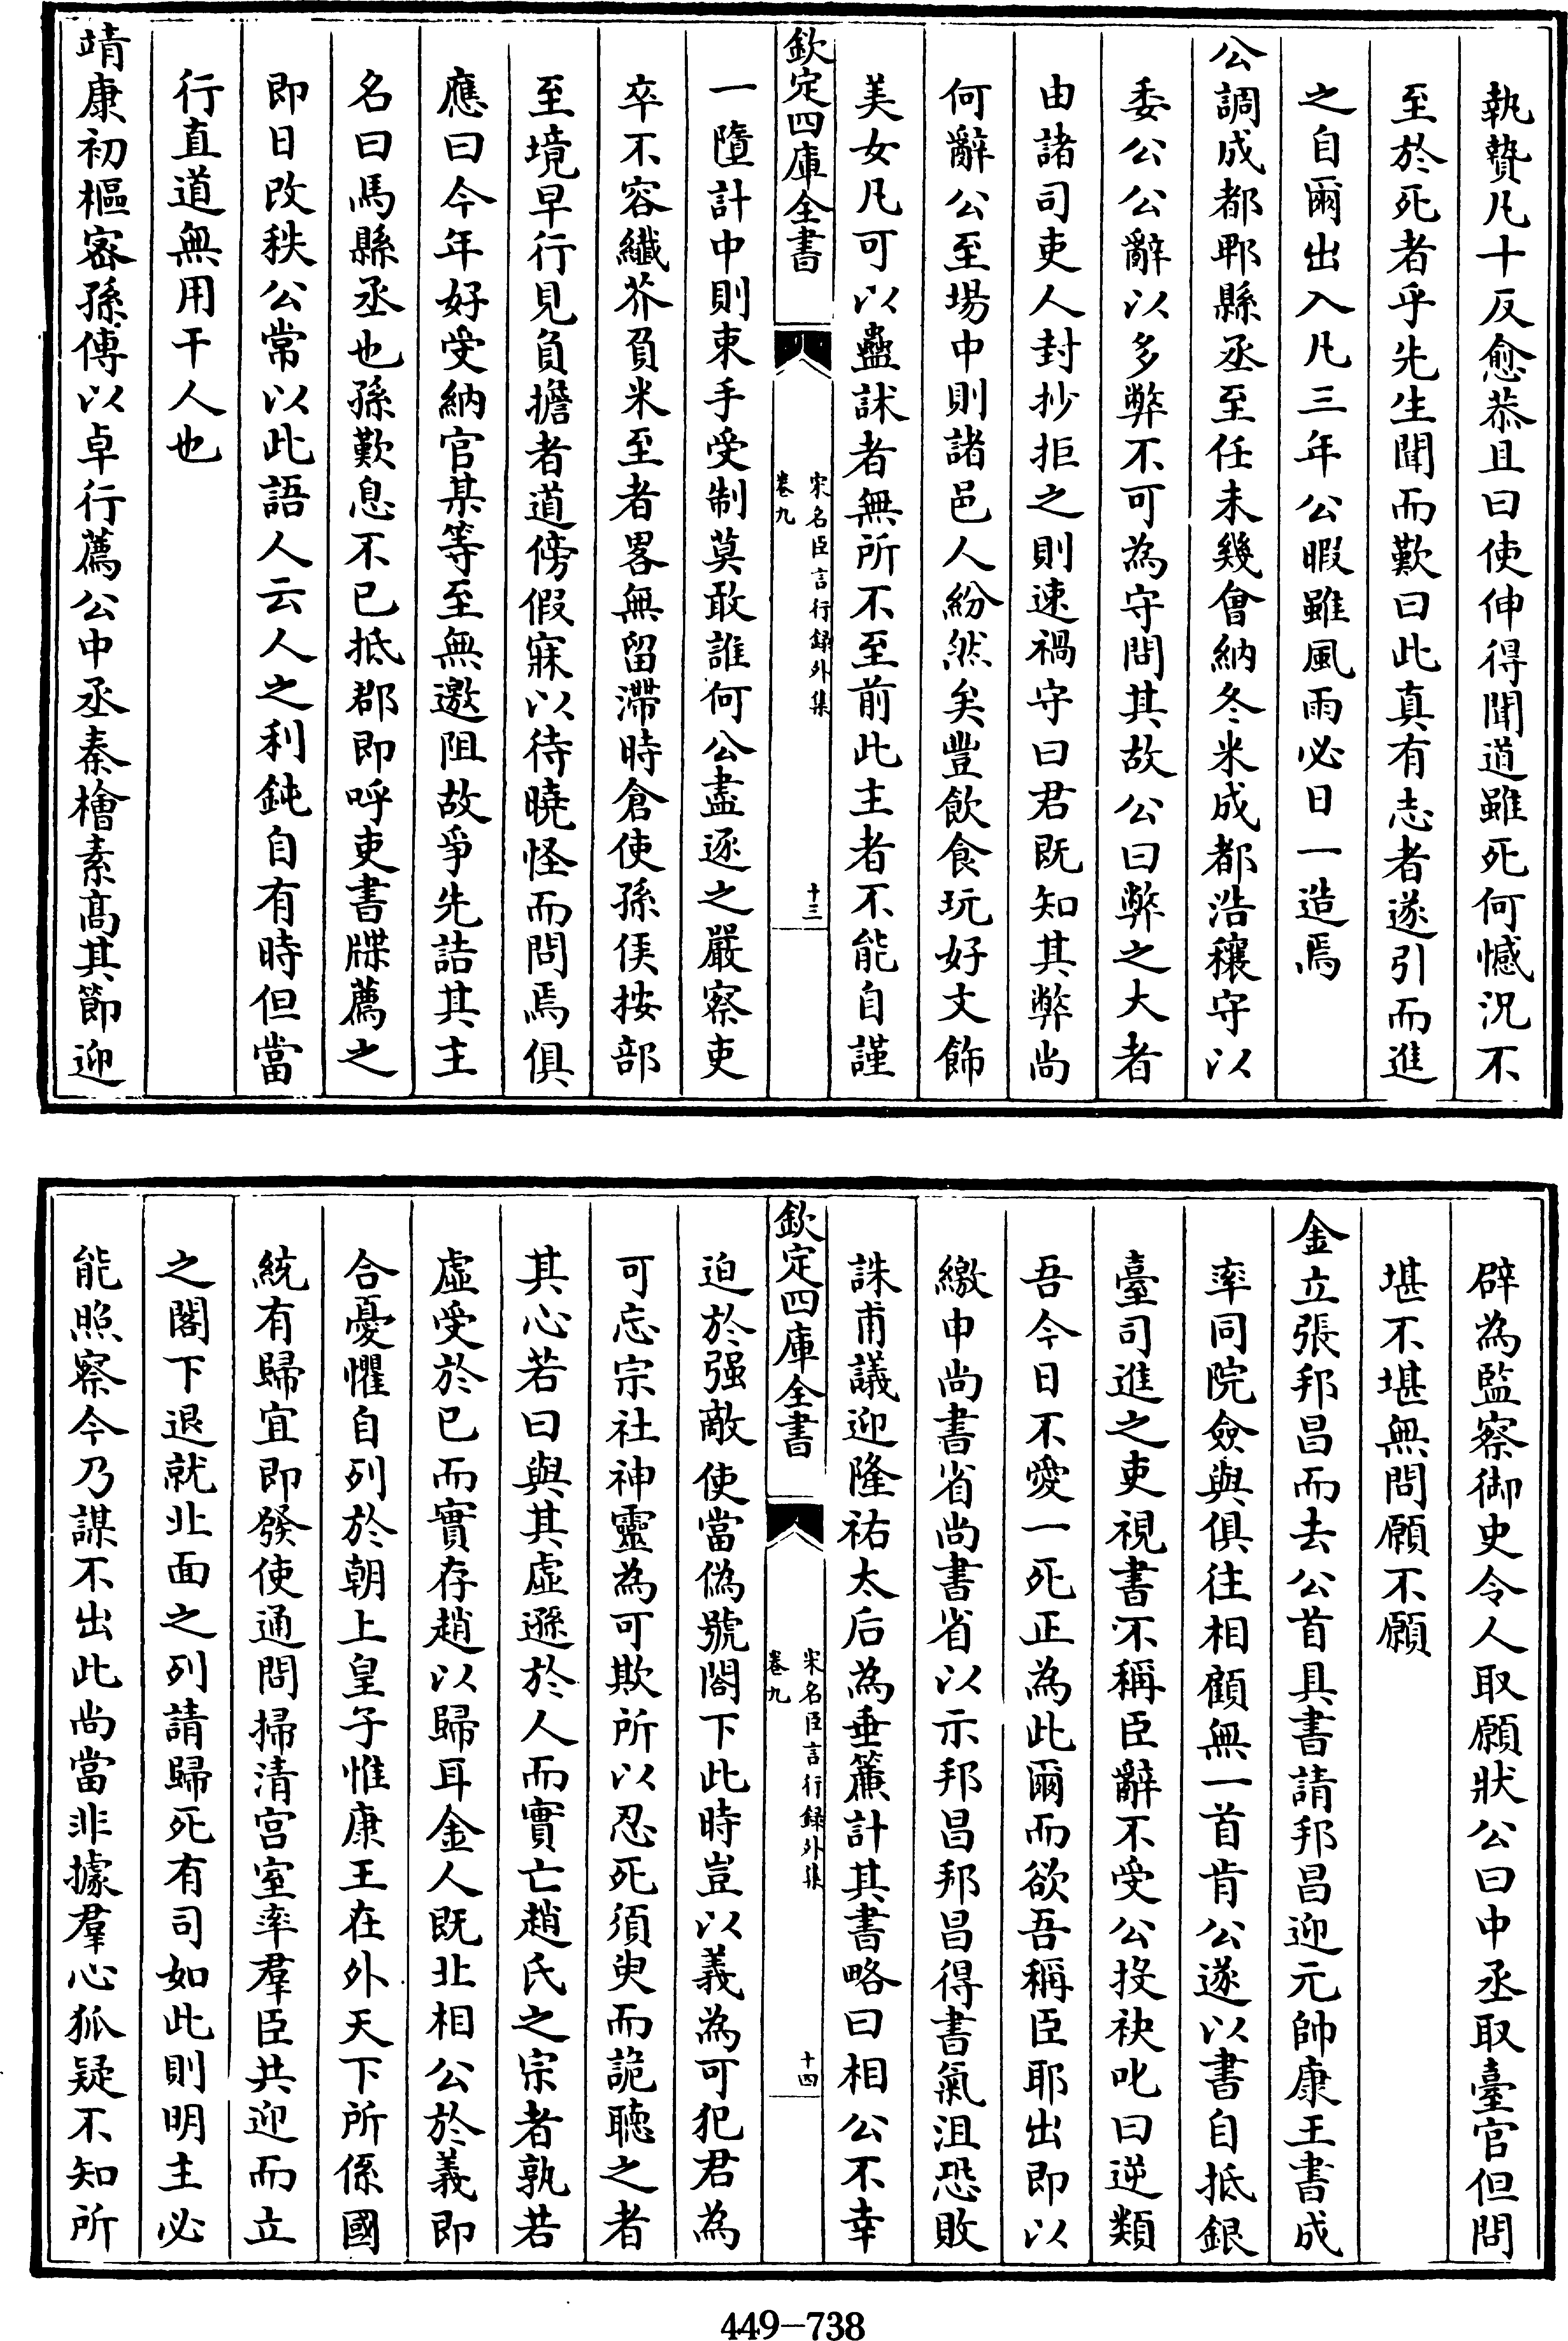 執贄凡十反愈恭且曰使伸得聞道雖死何憾況不
至於死者乎先生聞而歎曰此真有志者遂引而進
之自爾出入凡三年公暇雖風雨必日一造焉
公調成都郫縣丞至任未幾會納冬米成都浩穰守以
委公公辭以多弊不可為守問其故公曰弊之大者
由諸司吏人封抄拒之則速禍守曰君既知其弊尚
何辭公至場中則諸邑人紛然矣豐飲食玩好文飾
美女凡可以蠱訹者無所不至前此主者不能自謹
欽定四庫全書
宋名臣言行録外集
卷九
十三
一墮計中則束手受制莫敢誰何公盡逐之嚴察吏
卒不容纖芥負米至者畧無留滯時倉使孫俟按部
至境早行見負擔者道傍假寐以待曉怪而問焉俱
應曰今年好受納官某等至無邀阻故爭先詰其主
名曰馬縣丞也孫歎息不已抵郡即呼吏書牒薦之
即日改秩公常以此語人云人之利鈍自有時但當
行直道無用干人也
靖康初樞密孫傅以卓行薦公中丞秦檜素髙其節迎
辟為監察御史令人取願狀公曰中丞取臺官但問
堪不堪無問願不願
金立張邦昌而去公首具書請邦昌迎元帥康王書成
率同院僉與俱往相顧無一首肯公遂以書自抵銀
臺司進之吏視書不稱臣辭不受公投袂叱曰逆類
吾今日不愛一死正為此爾而欲吾稱臣耶出即以
繳申尚書省尚書省以示邦昌邦昌得書氣沮恐敗
誅甫議迎隆祐太后為垂簾計其書略曰相公不幸
欽定四庫全書
宋名臣言行録外集
卷九
十四
迫於强敵使當偽號閤下此時豈以義為可犯君為
可忘宗社神靈為可欺所以忍死須臾而詭聽之者
其心若曰與其虛遜於人而實亡趙氏之宗者孰若
虛受於已而實存趙以歸耳金人既北相公於義即
合憂懼自列於朝上皇子惟康王在外天下所係國
統有歸宜即發使通問掃清宫室率羣臣共迎而立
之閣下退就北面之列請歸死有司如此則明主必
能照察今乃謀不出此尚當非據羣心狐疑不知所
449-738